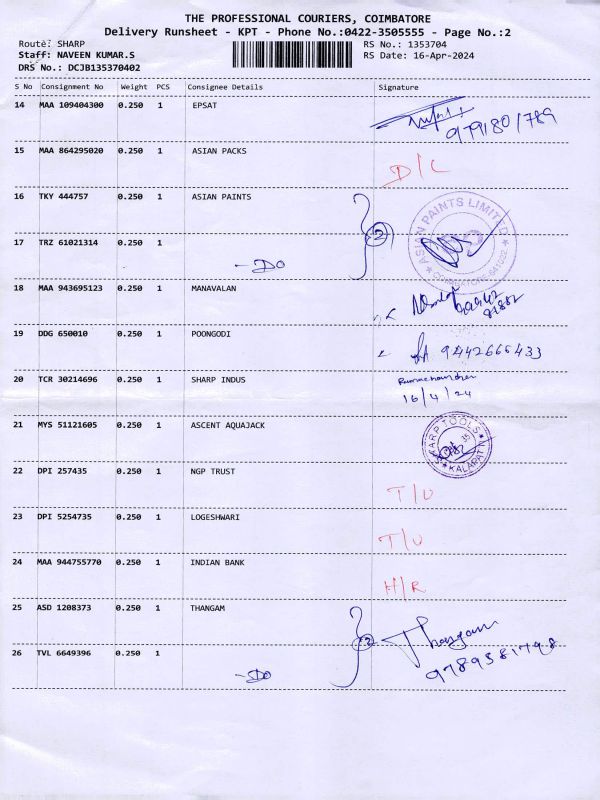 THE PROFESSIONAL COURIERS, COIMBATORE
Delivery Runsheet - KPT - Phone No.:0422-3505555 - Page No.:2
Route: SHARP RS No.: 1353704
Staff: NAVEEN KUMAR.S RS Date: 16-Apr-2024
DRS No.: DCJB135370402
S No Consignment No Weight PCS Consignee Details Signature
14 MAA 109404300 0.250 1 EPSAT
15 MAA 864295020 0.250 1 ASIAN PACKS D/C
16 TKY 444757 0.250 1 ASIAN PAINTS 2 ASIAN PAINTS LIMITED
17 TRZ 61021314 0.250 1 -DO
18 MAA 943695123 0.250 1 MANAVALAN
19 DDG 650010 0.250 1 POONGODI 9442666433
20 TCR 30214696 0.250 1 SHARP INDUS 16/4/24
21 MYS 51121605 0.250 1 ASCENT AQUAJACK SHARP TOOLS
22 DPI 257435 0.250 1 NGP TRUST T/U
23 DPI 5254735 0.250 1 LOGESHWARI T/U
24 MAA 944755770 0.250 1 INDIAN BANK H/R
25 ASD 1208373 0.250 1 THANGAM 2 Thangam
9789381798
26 TVL 6649396 0.250 1 -DO